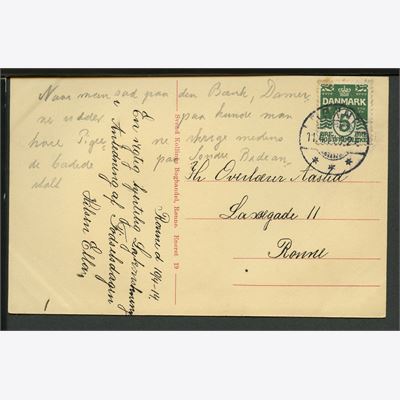 Naar men sad paa den Bænk, Damer
ne sidder paa kunde man
høre Piger ne skrige medens
de badede paa Søndre Badean
stalt
Rønne d 10/4-14.
En rigtig hjertelig Lykønskning
i Anledning af Fødselsdagen
Hilsen Ellen
Svend Kollings Boghandel, Rønne. Eneret 19
DANMARK
5
Hr Overlærer Aasted
Laxegade 11
Rønne